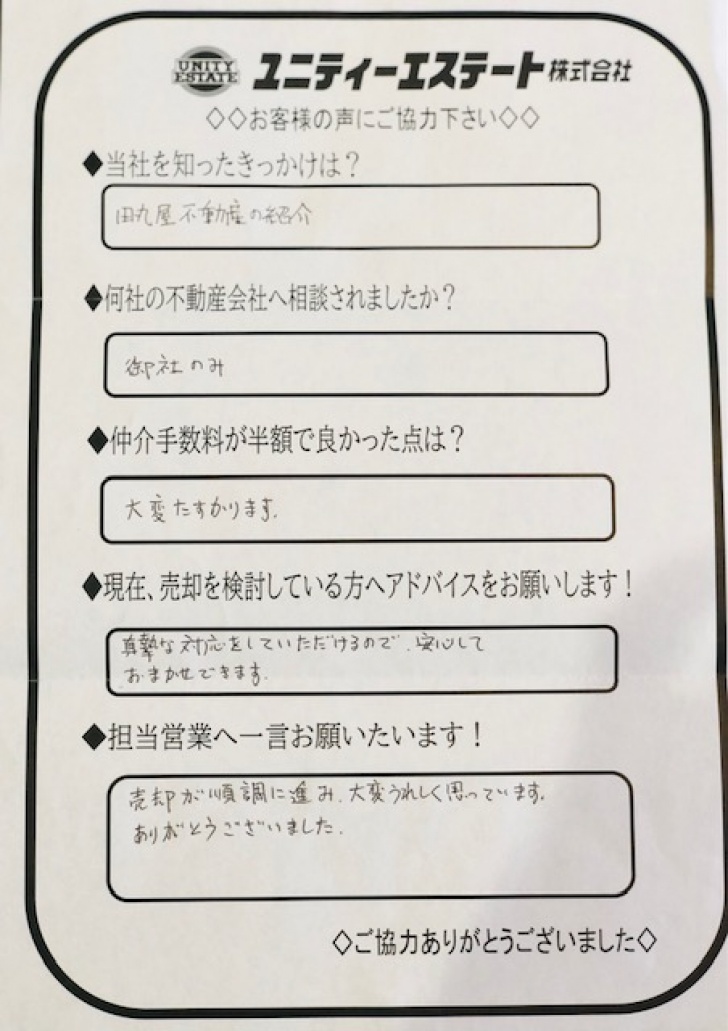 UNITY
ESTATE
ユニティーエステート株式会社
◇◇お客様の声にご協力下さい◇◇
◆当社を知ったきっかけは？
田丸屋不動産の紹介
◆何社の不動産会社へ相談されましたか？
御社のみ
◆仲介手数料が半額で良かった点は？
大変たすかります。
◆現在、売却を検討している方へアドバイスをお願いします！
真摯な対応をしていただけるので、安心して
おまかせできます。
◆担当営業へ一言お願いたいます！
売却が順調に進み、大変うれしく思っています。
ありがとうございました。
◇ご協力ありがとうございました◇